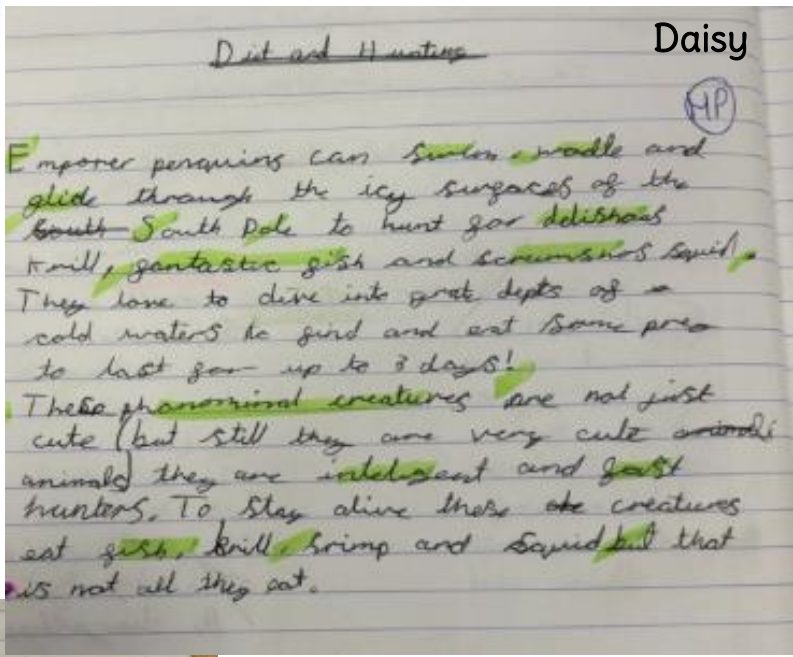 Daisy
Diet and Hunting
MP
Emporer penquins can swim, wadle and
glide through the icy surfaces of the
South South Pole to hunt for delishous
Krill, fantastic fish and scrumshos squid.
They love to dive into grat depts of
cold waters to find and eat some prea
to last for up to 3 days!
These phanominal creatures are not just
cute (but still they are very cute animals
animals) they are inteligent and fast
hunters. To stay alive these creatures
eat fish, krill, srimp and squid but that
is not all they eat.